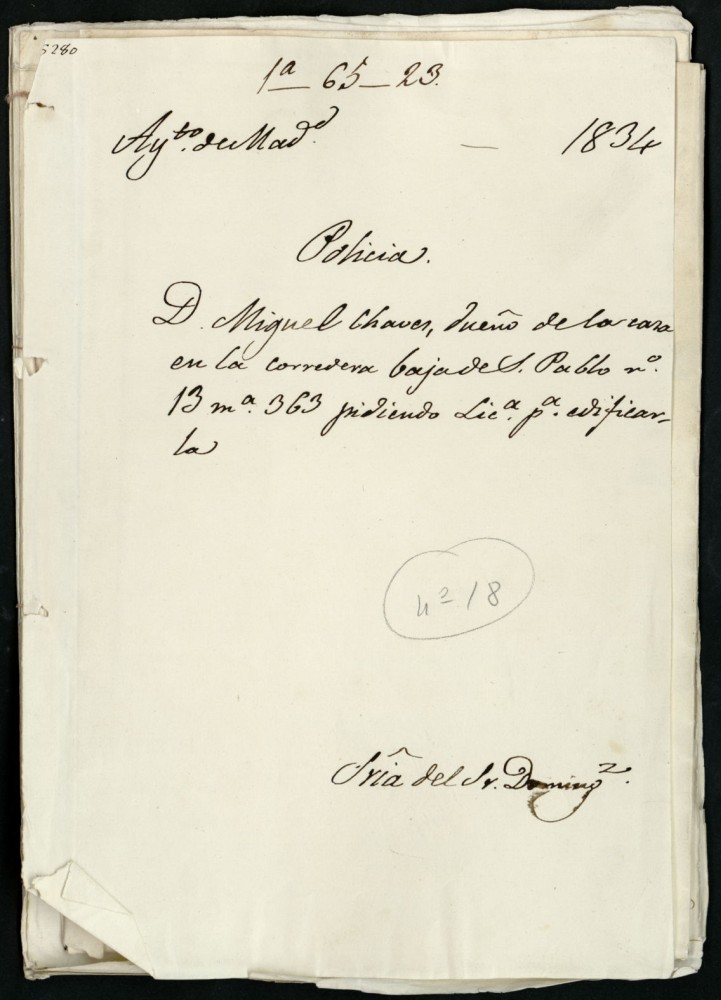 5280
1ª — 65 — 23.
Ayto. de Madd. — 1834
Policia.
D. Miguel Chaves, dueño de la casa
en la corredera baja de S. Pablo nº.
13 mª. 363 pidiendo Licª. pª. edificar-
la
nº 18
Sría del Sr. Domingz.